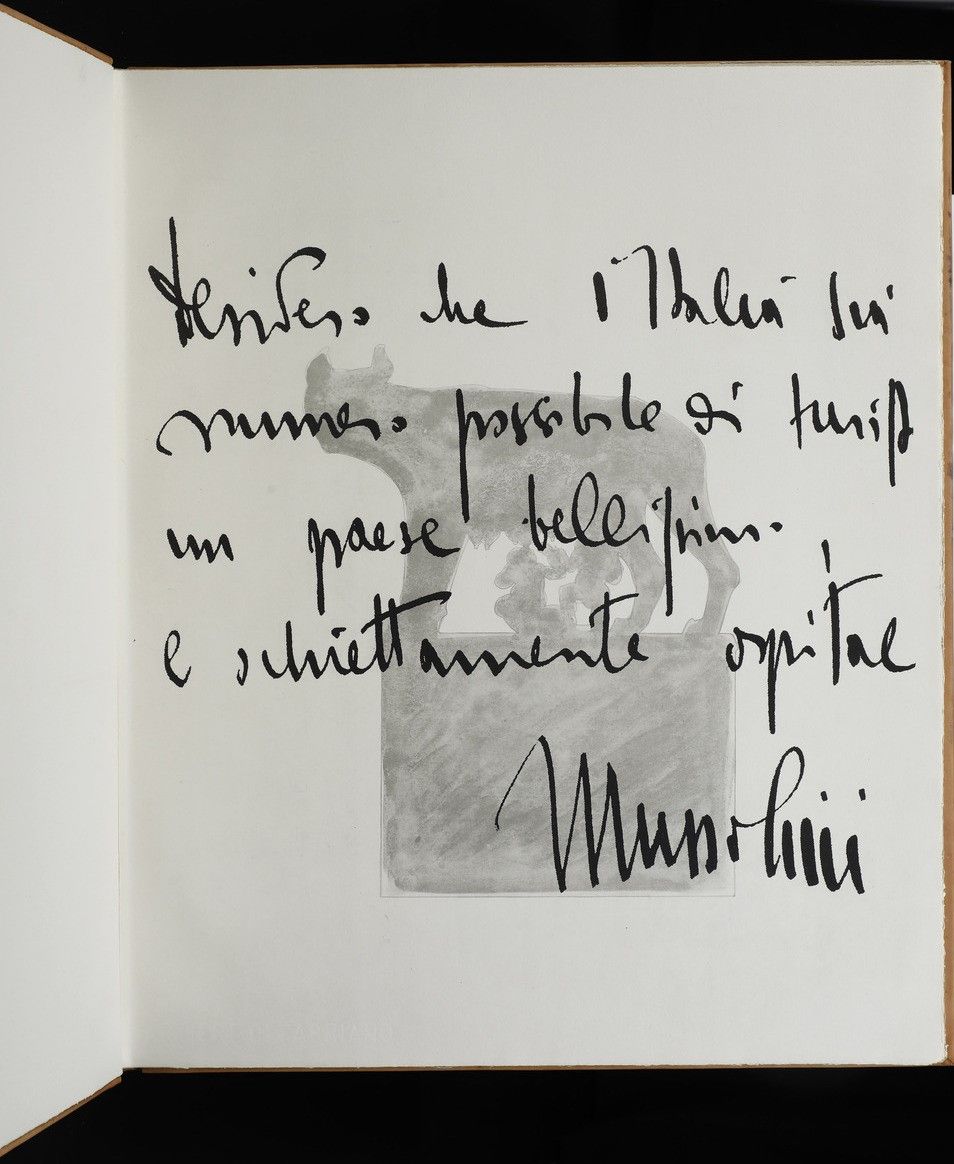 desidero che l'Italia sia
numero possibile di turisti
un paese bellissimo
e schiettamente ospitale
Mussolini